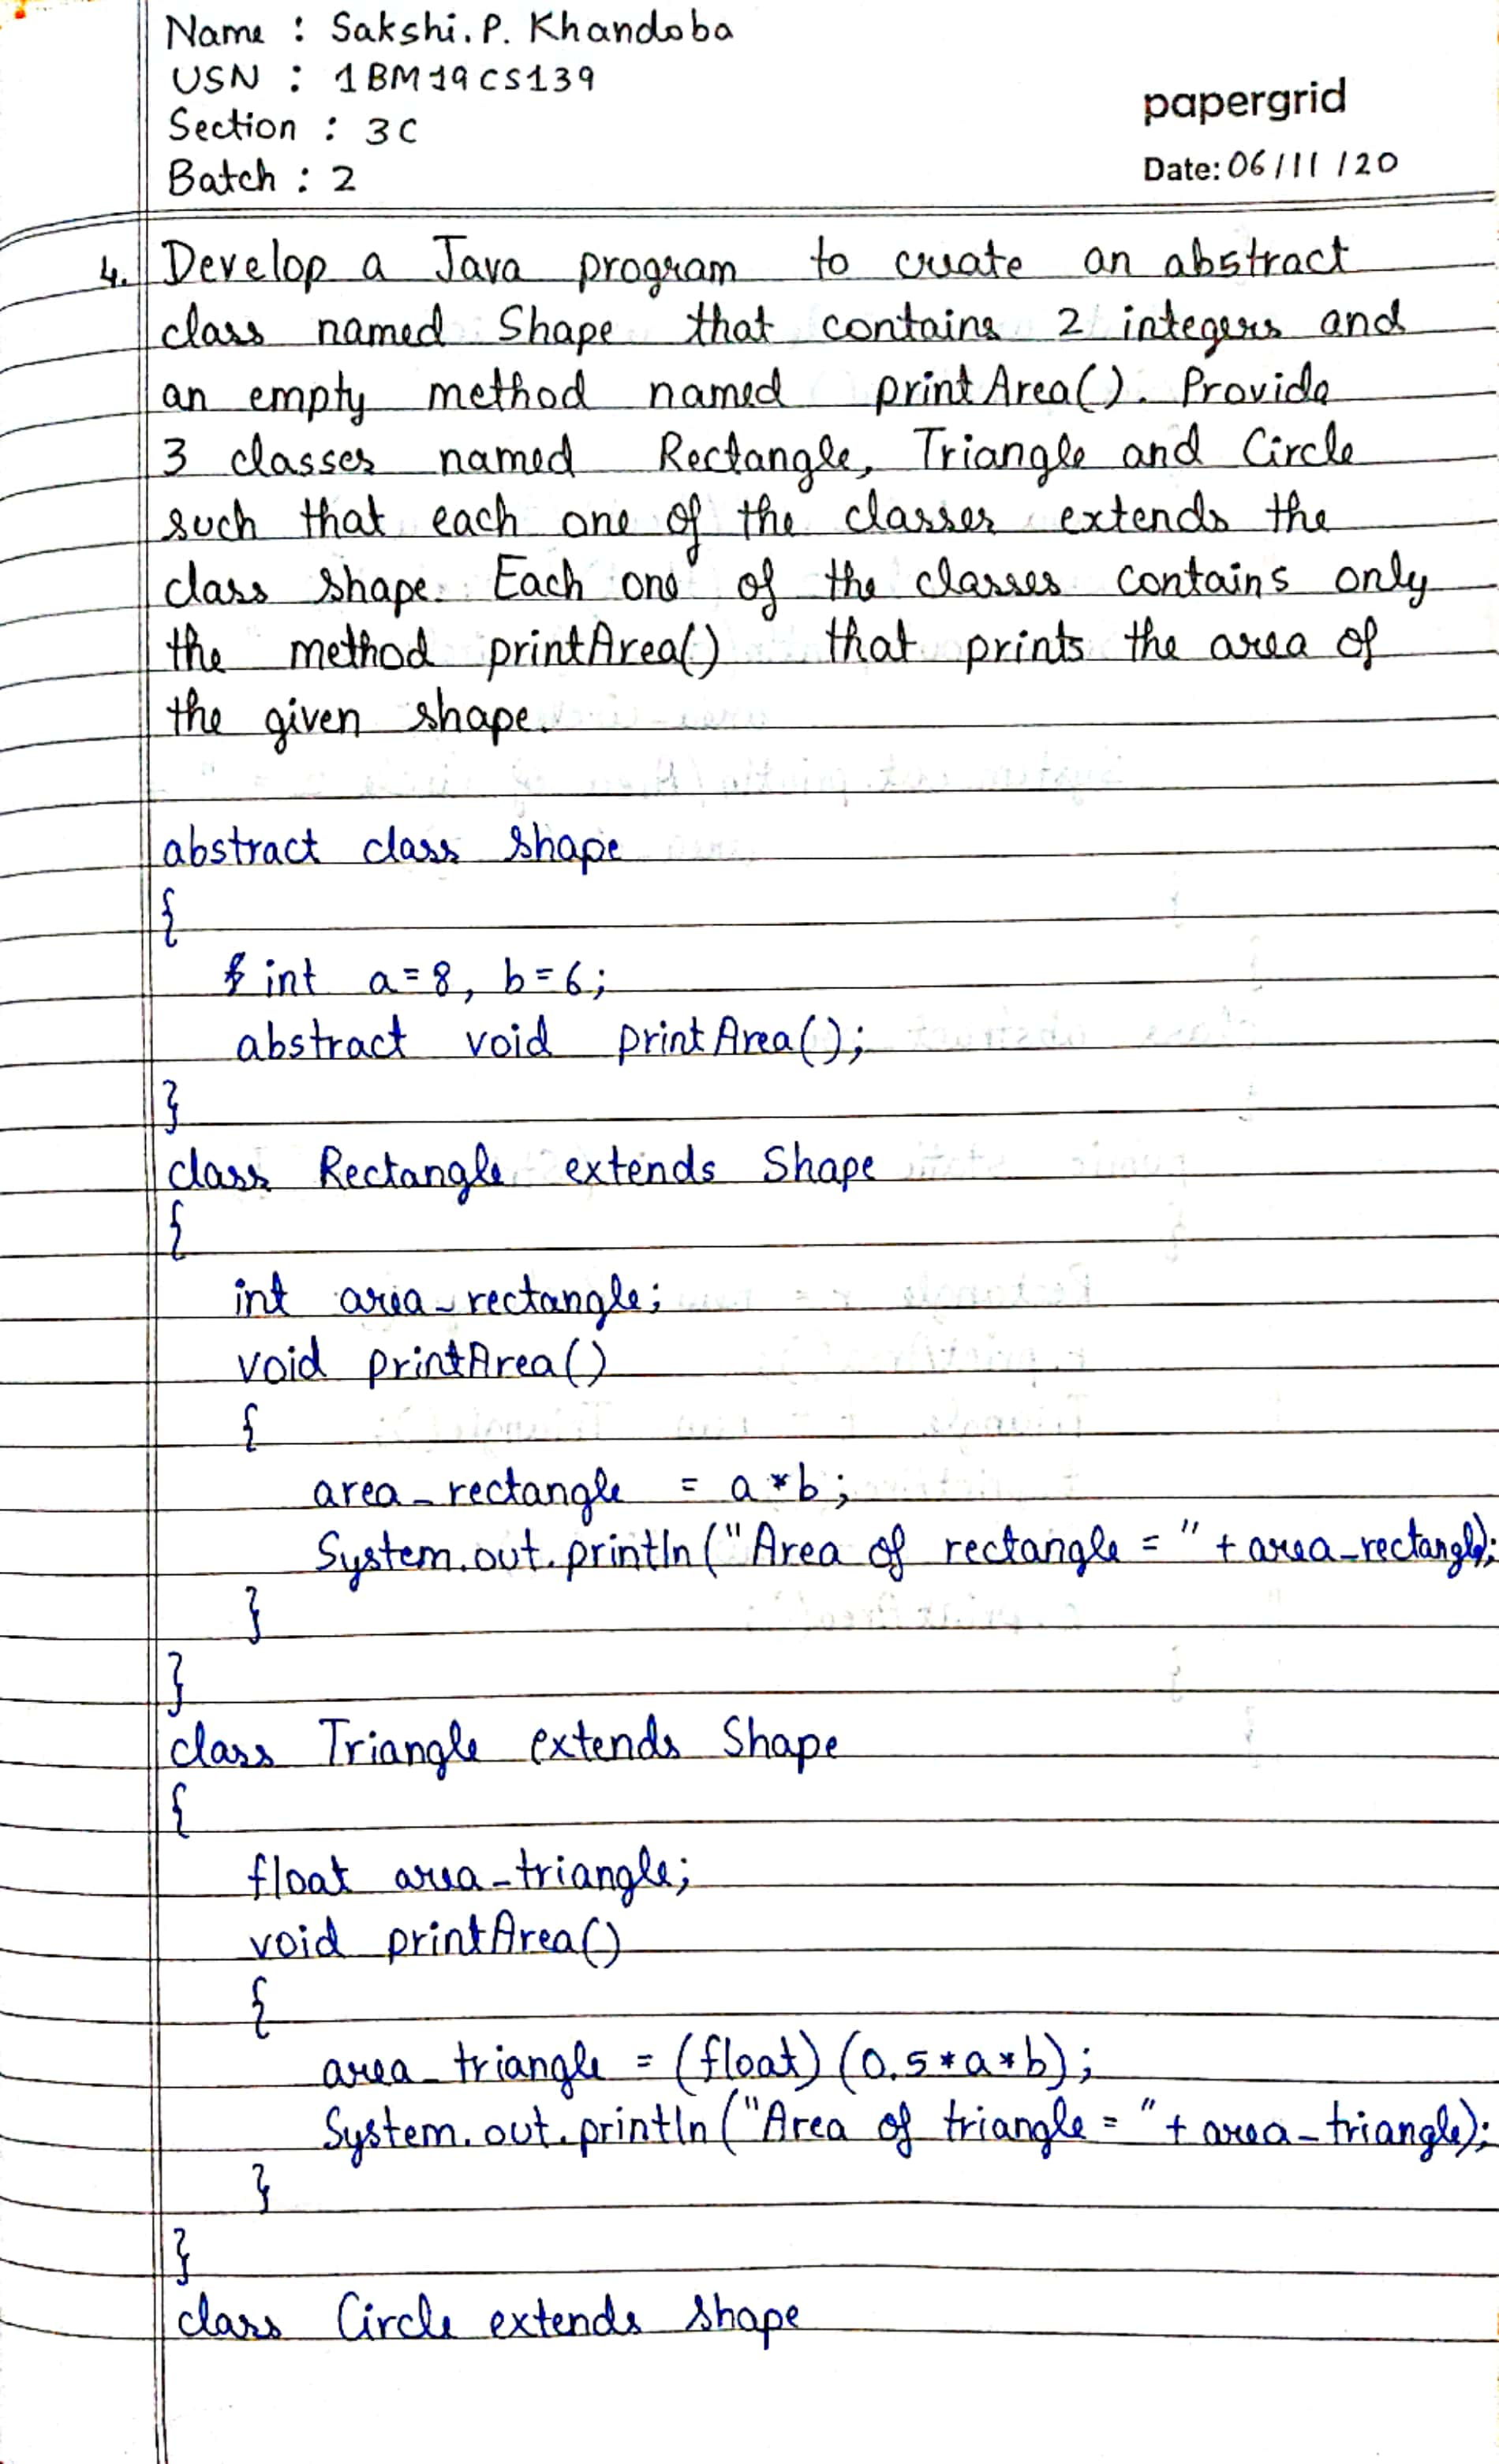 Name : Sakshi. P. Khandoba
USN : 1BM19CS139
Section : 3C
Batch : 2
papergrid
Date: 06/11/20
4. Develop a Java program to create an abstract
class named Shape that contains 2 integers and
an empty method named printArea(). Provide
3 classes named Rectangle, Triangle and Circle
such that each one of the classes extends the
class shape. Each one of the classes contains only
the method printArea() that prints the area of
the given shape.
abstract class shape
{
int a=8, b=6;
abstract void printArea();
}
class Rectangle extends Shape
{
int area_rectangle;
void printArea()
{
area_rectangle = a*b;
System.out.println("Area of rectangle = " + area_rectangle);
}
}
class Triangle extends Shape
{
float area_triangle;
void printArea()
{
area_triangle = (float) (0.5*a*b);
System.out.println("Area of triangle = " + area_triangle);
}
}
class Circle extends shape